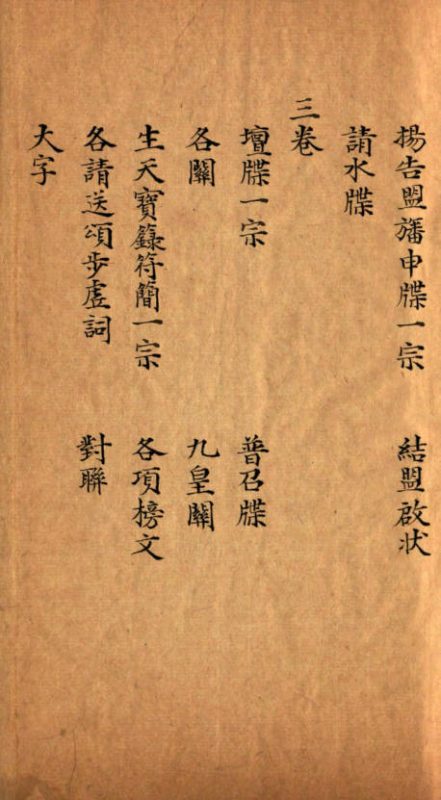 揚告盟旛申牒一宗　結盟啟状
請水牒
三卷
壇牒一宗　普召牒
各關　九皇關
生天寶籙符簡一宗　各項榜文
各請送頌步虛詞　對聯
大字